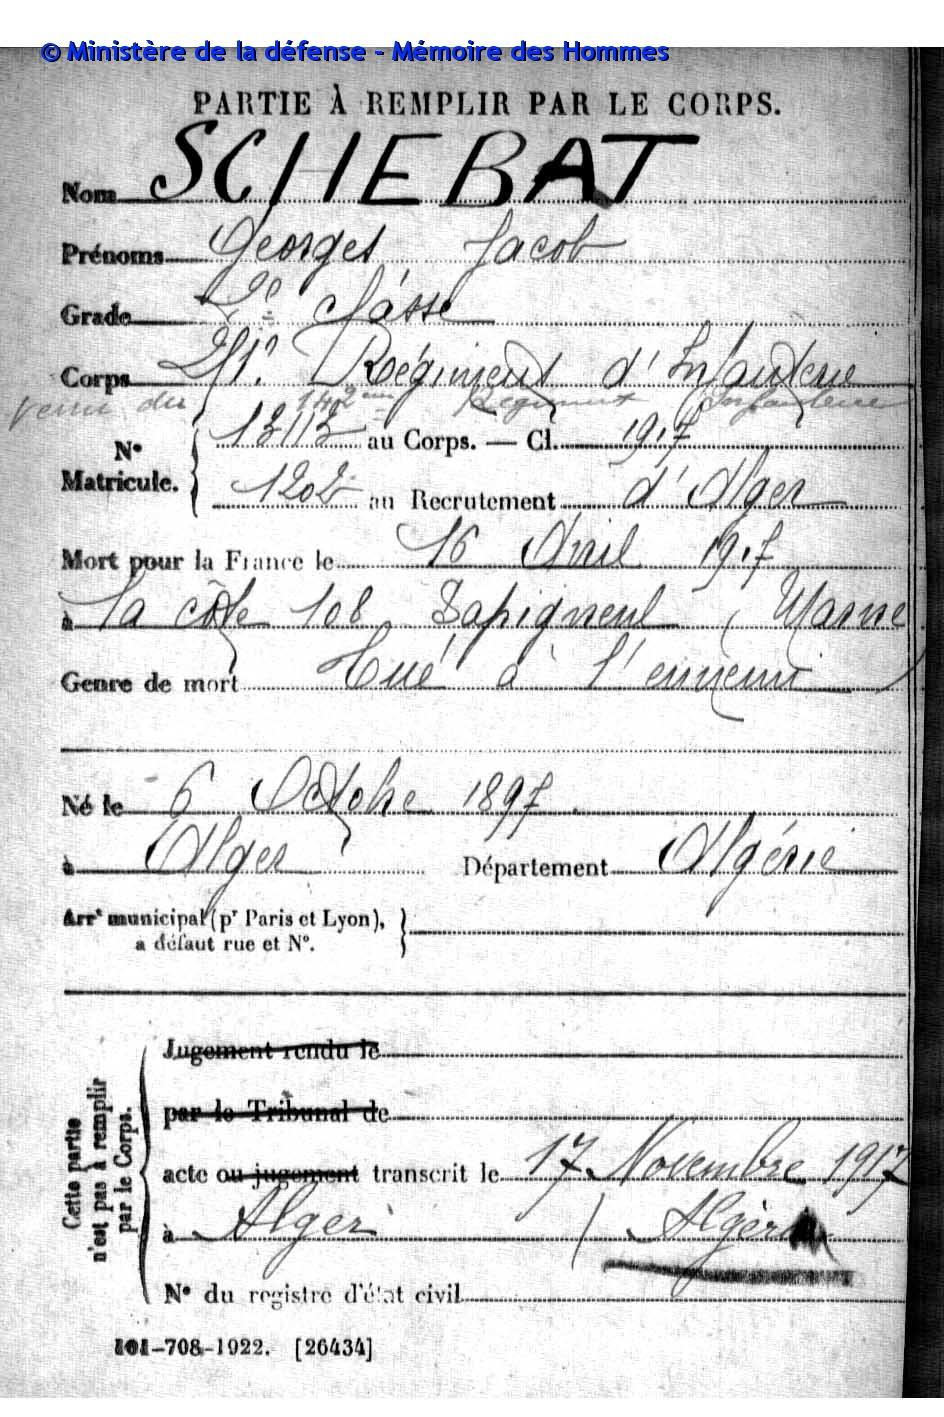 © Ministère de la défense - Mémoire des Hommes
PARTIE À REMPLIR PAR LE CORPS.
Nom SCHEBAT
Prénoms Georges Jacob
Grade 2e classe
Corps Régiment d'Infanterie
venu du 142em Régiment Infanterie
N° Matricule. au Corps. — Cl. 1917
1202 au Recrutement d'Alger
Mort pour la France le 16 Avril 1917
à la côte 108 Sapigneul (Marne)
Genre de mort Tué à l'ennemi
Né le 6 Octobre 1897.
à Alger Département Algérie
Arrt municipal (pr Paris et Lyon),
a défaut rue et N°.
Cette partie n'est pas à remplir par le Corps.
Jugement rendu le
par le Tribunal de
acte ou jugement transcrit le 17 Novembre 1917
à Alger (Algérie
N° du registre d'état civil
101-708-1922. [26434]